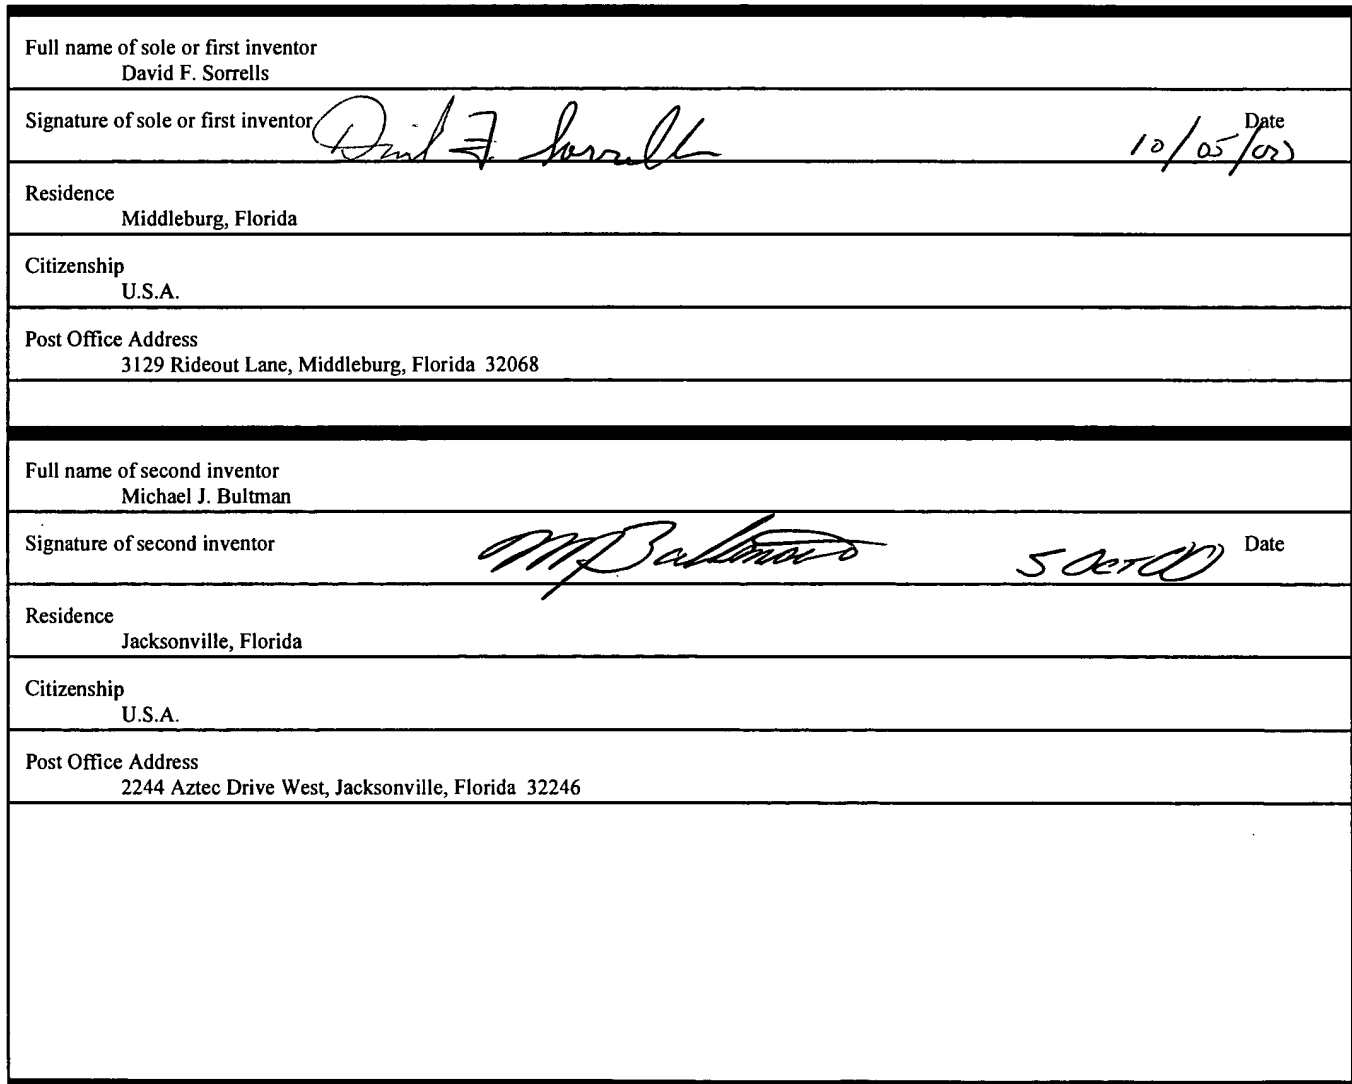 Full name of sole or first inventor
David F. Sorrells
Signature of sole or first inventor David F. Sorrells Date
10/05/00
Residence
Middleburg, Florida
Citizenship
U.S.A.
Post Office Address
3129 Rideout Lane, Middleburg, Florida 32068
Full name of second inventor
Michael J. Bultman
Signature of second inventor MJBultman 5 OCT 00 Date
Residence
Jacksonville, Florida
Citizenship
U.S.A.
Post Office Address
2244 Aztec Drive West, Jacksonville, Florida 32246